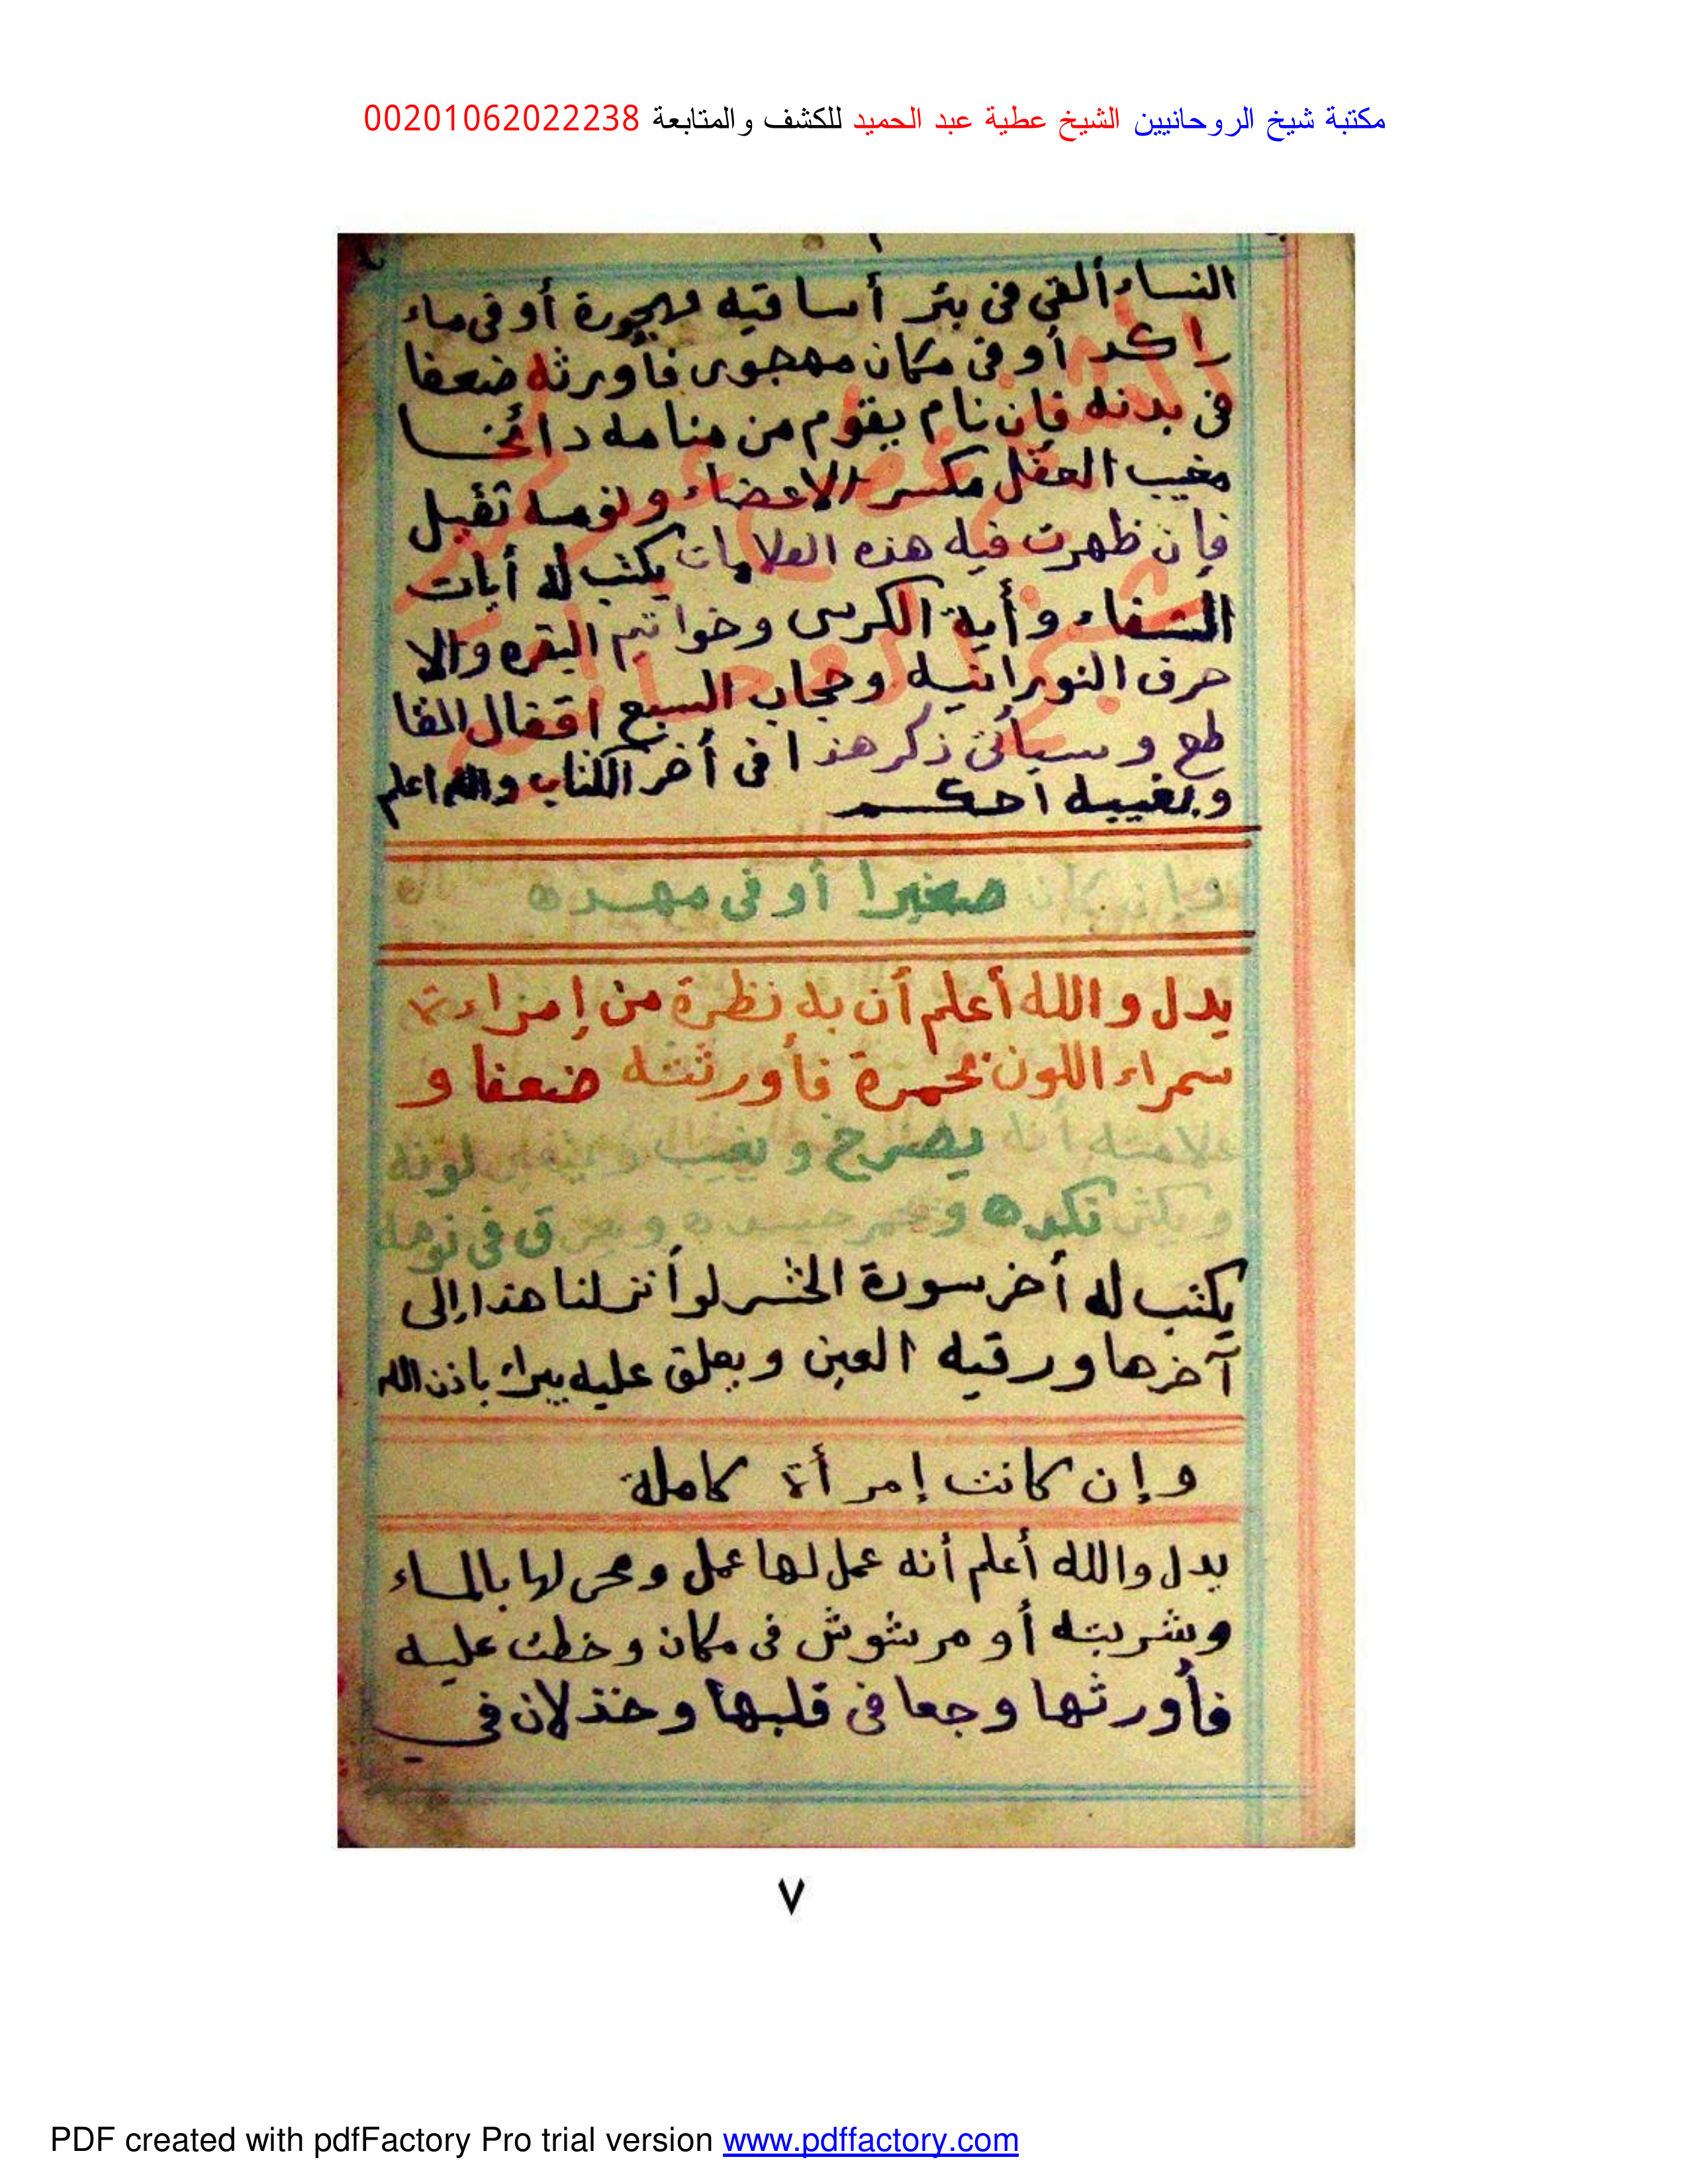 مكتبة شيخ الروحانيين الشيخ عطية عبد الحميد للكشف والمتابعة 00201062022238
النساء ألقي في بئر أساقيه مهجورة أو في ماء
راكد أو في مكان مهجور فأورثه ضعفا
في بدنه فإن نام يقوم من منامه دائخا
مغيب العقل مكسر الاعضاء ونومه ثقيل
فإن ظهرت فيه هذه العلامات يكتب له أيات
الشفاء وأية الكرسى وخواتيم البقره والا
حرف النورانيه وحجاب السبع اقفال القا
طع وسيأتى ذكر هذا فى أخر الكتاب والله اعلم
وبغيبه احكم
وإن كان صغيرا أو فى مهده
يدل والله أعلم أن به نظرة من إمراءة
سمراء اللون بحمرة فأورثته ضعفا و
علامته أنه يصرخ و يغيب لونه
و يكثر نكده و جسده و يعرق في نومه
يكتب له أخر سورة الحشر لو أنزلنا هذا إلى
آخرها ورقيه العين ويعلق عليه يبراء باذن الله
وإن كانت إمرأة كاملة
يدل والله أعلم أنه عمل لها عمل ومحى لها بالماء
وشربته أو مرشوش فى مكان وخطت عليه
فأورثها وجعا فى قلبها وخذلان في
٧
PDF created with pdfFactory Pro trial version www.pdffactory.com